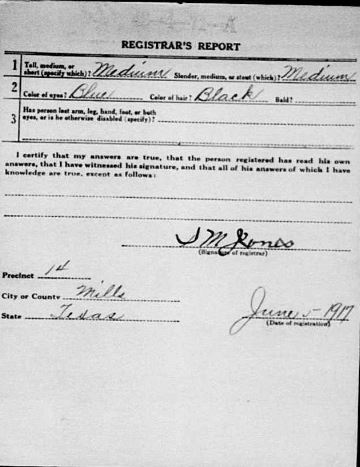 REGISTRAR'S REPORT
1 Tall, medium, or short (specify which)? Medium Slender, medium, or stout (which)? Medium
2 Color of eyes? Blue Color of hair? Black Bald?
3 Has person lost arm, leg, hand, foot, or both eyes, or is he otherwise disabled (specify)?
I certify that my answers are true, that the person registered has read his own
answers, that I have witnessed his signature, and that all of his answers of which I have
knowledge are true, except as follows:
S M Jones
(Signature of registrar)
Precinct 14
City or County Mills
State Texas
June 5 - 1917
(Date of registration)